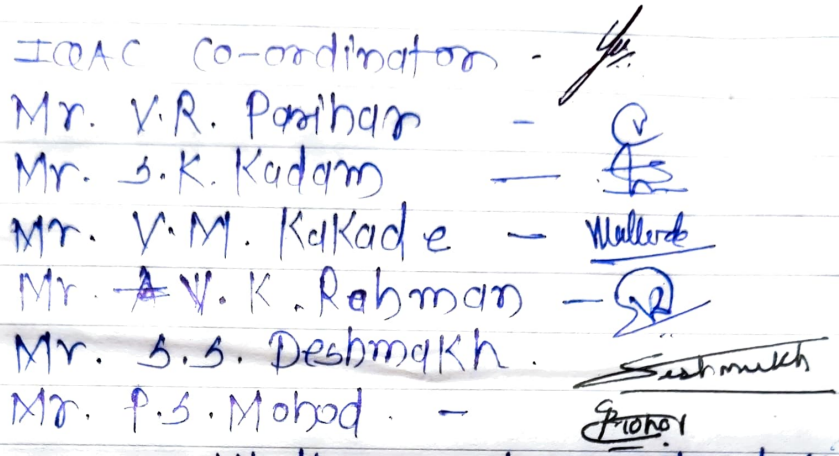 IQAC Co-ordinator -
Mr. V.R. Parihar -
Mr. S.K. Kadam —
Mr. V.M. Kakade -
Mr. V.K. Rahman -
Mr. S.S. Deshmukh. Deshmukh
Mr. P.S. Mohod. -